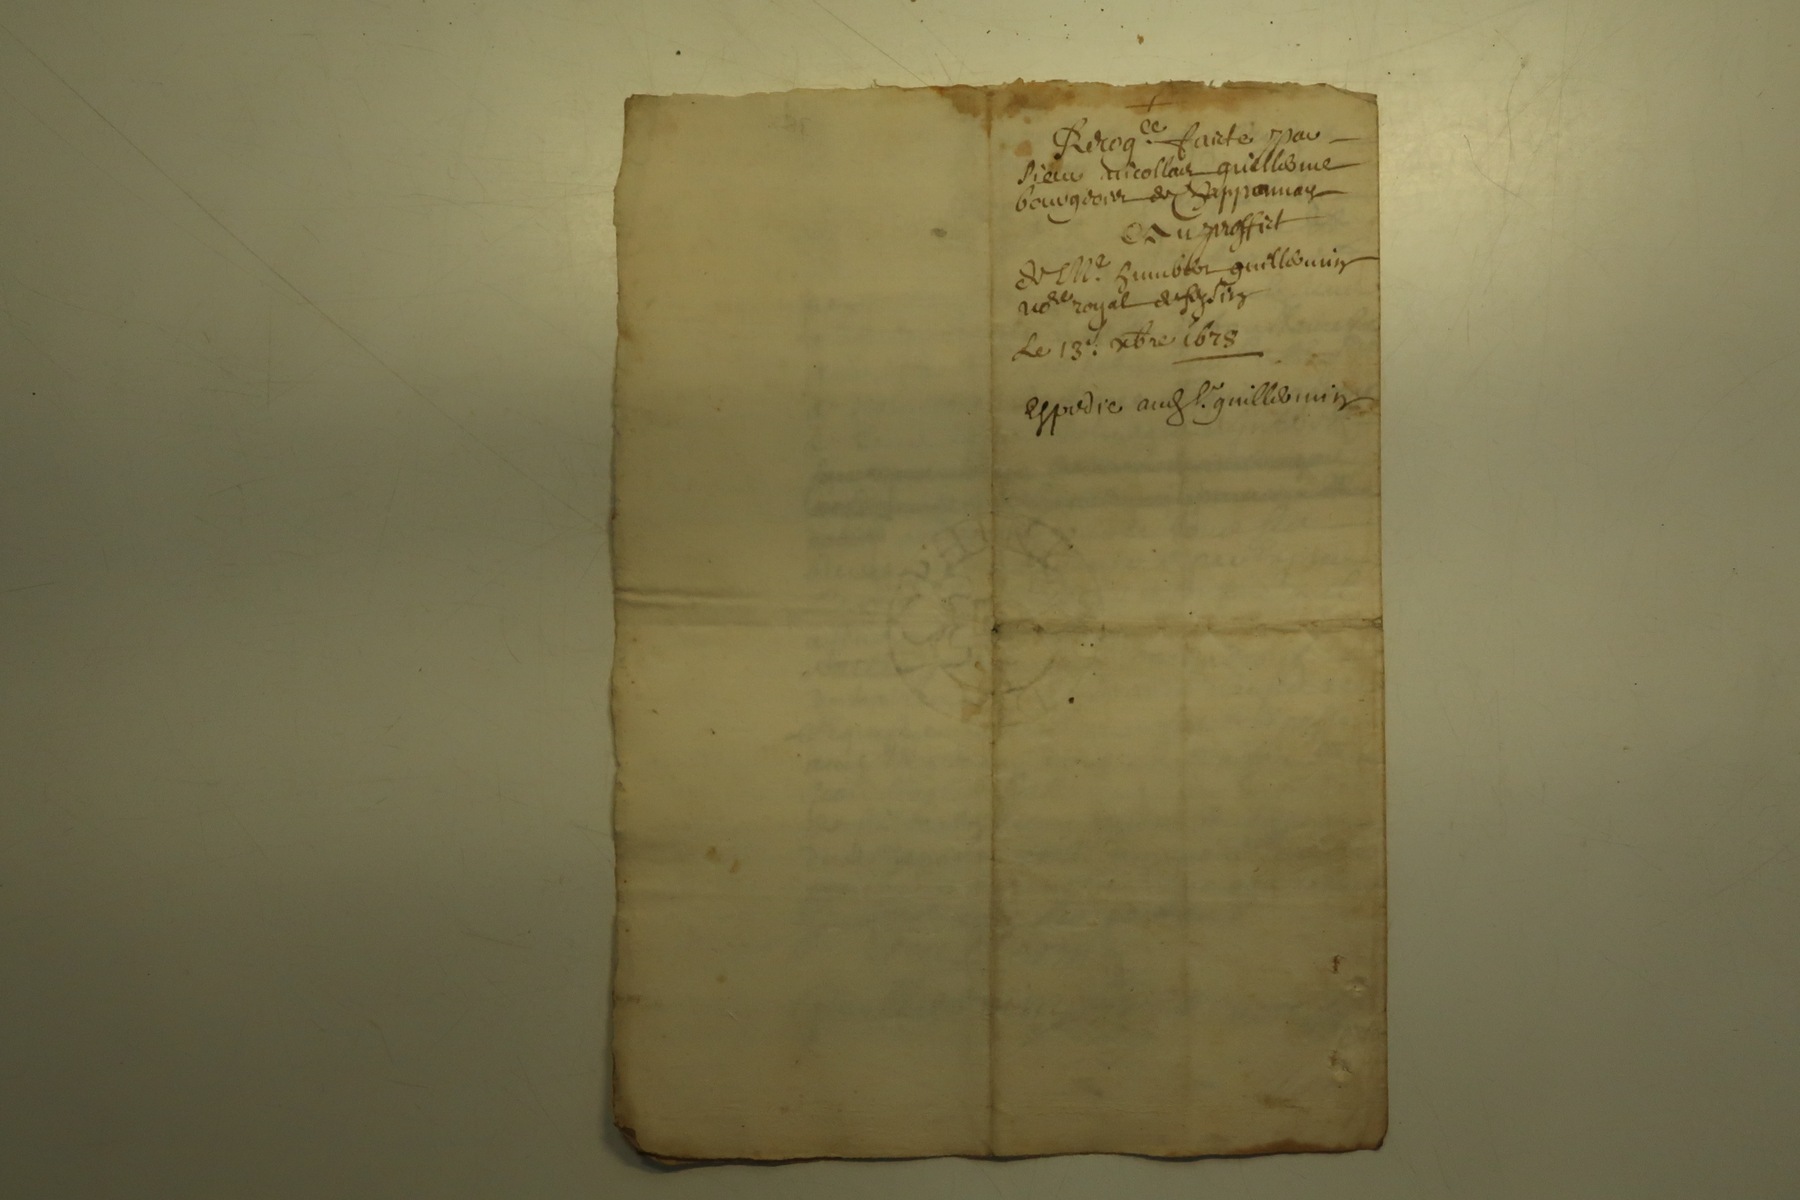 +
Recog.ce faicte par
sieur nicollas guillerme
bourgeois de
Au proffict
de M.e humbert guillermin
no.re royal de
Le 13.e xbre 1678
Expedie aud s.r guillermin